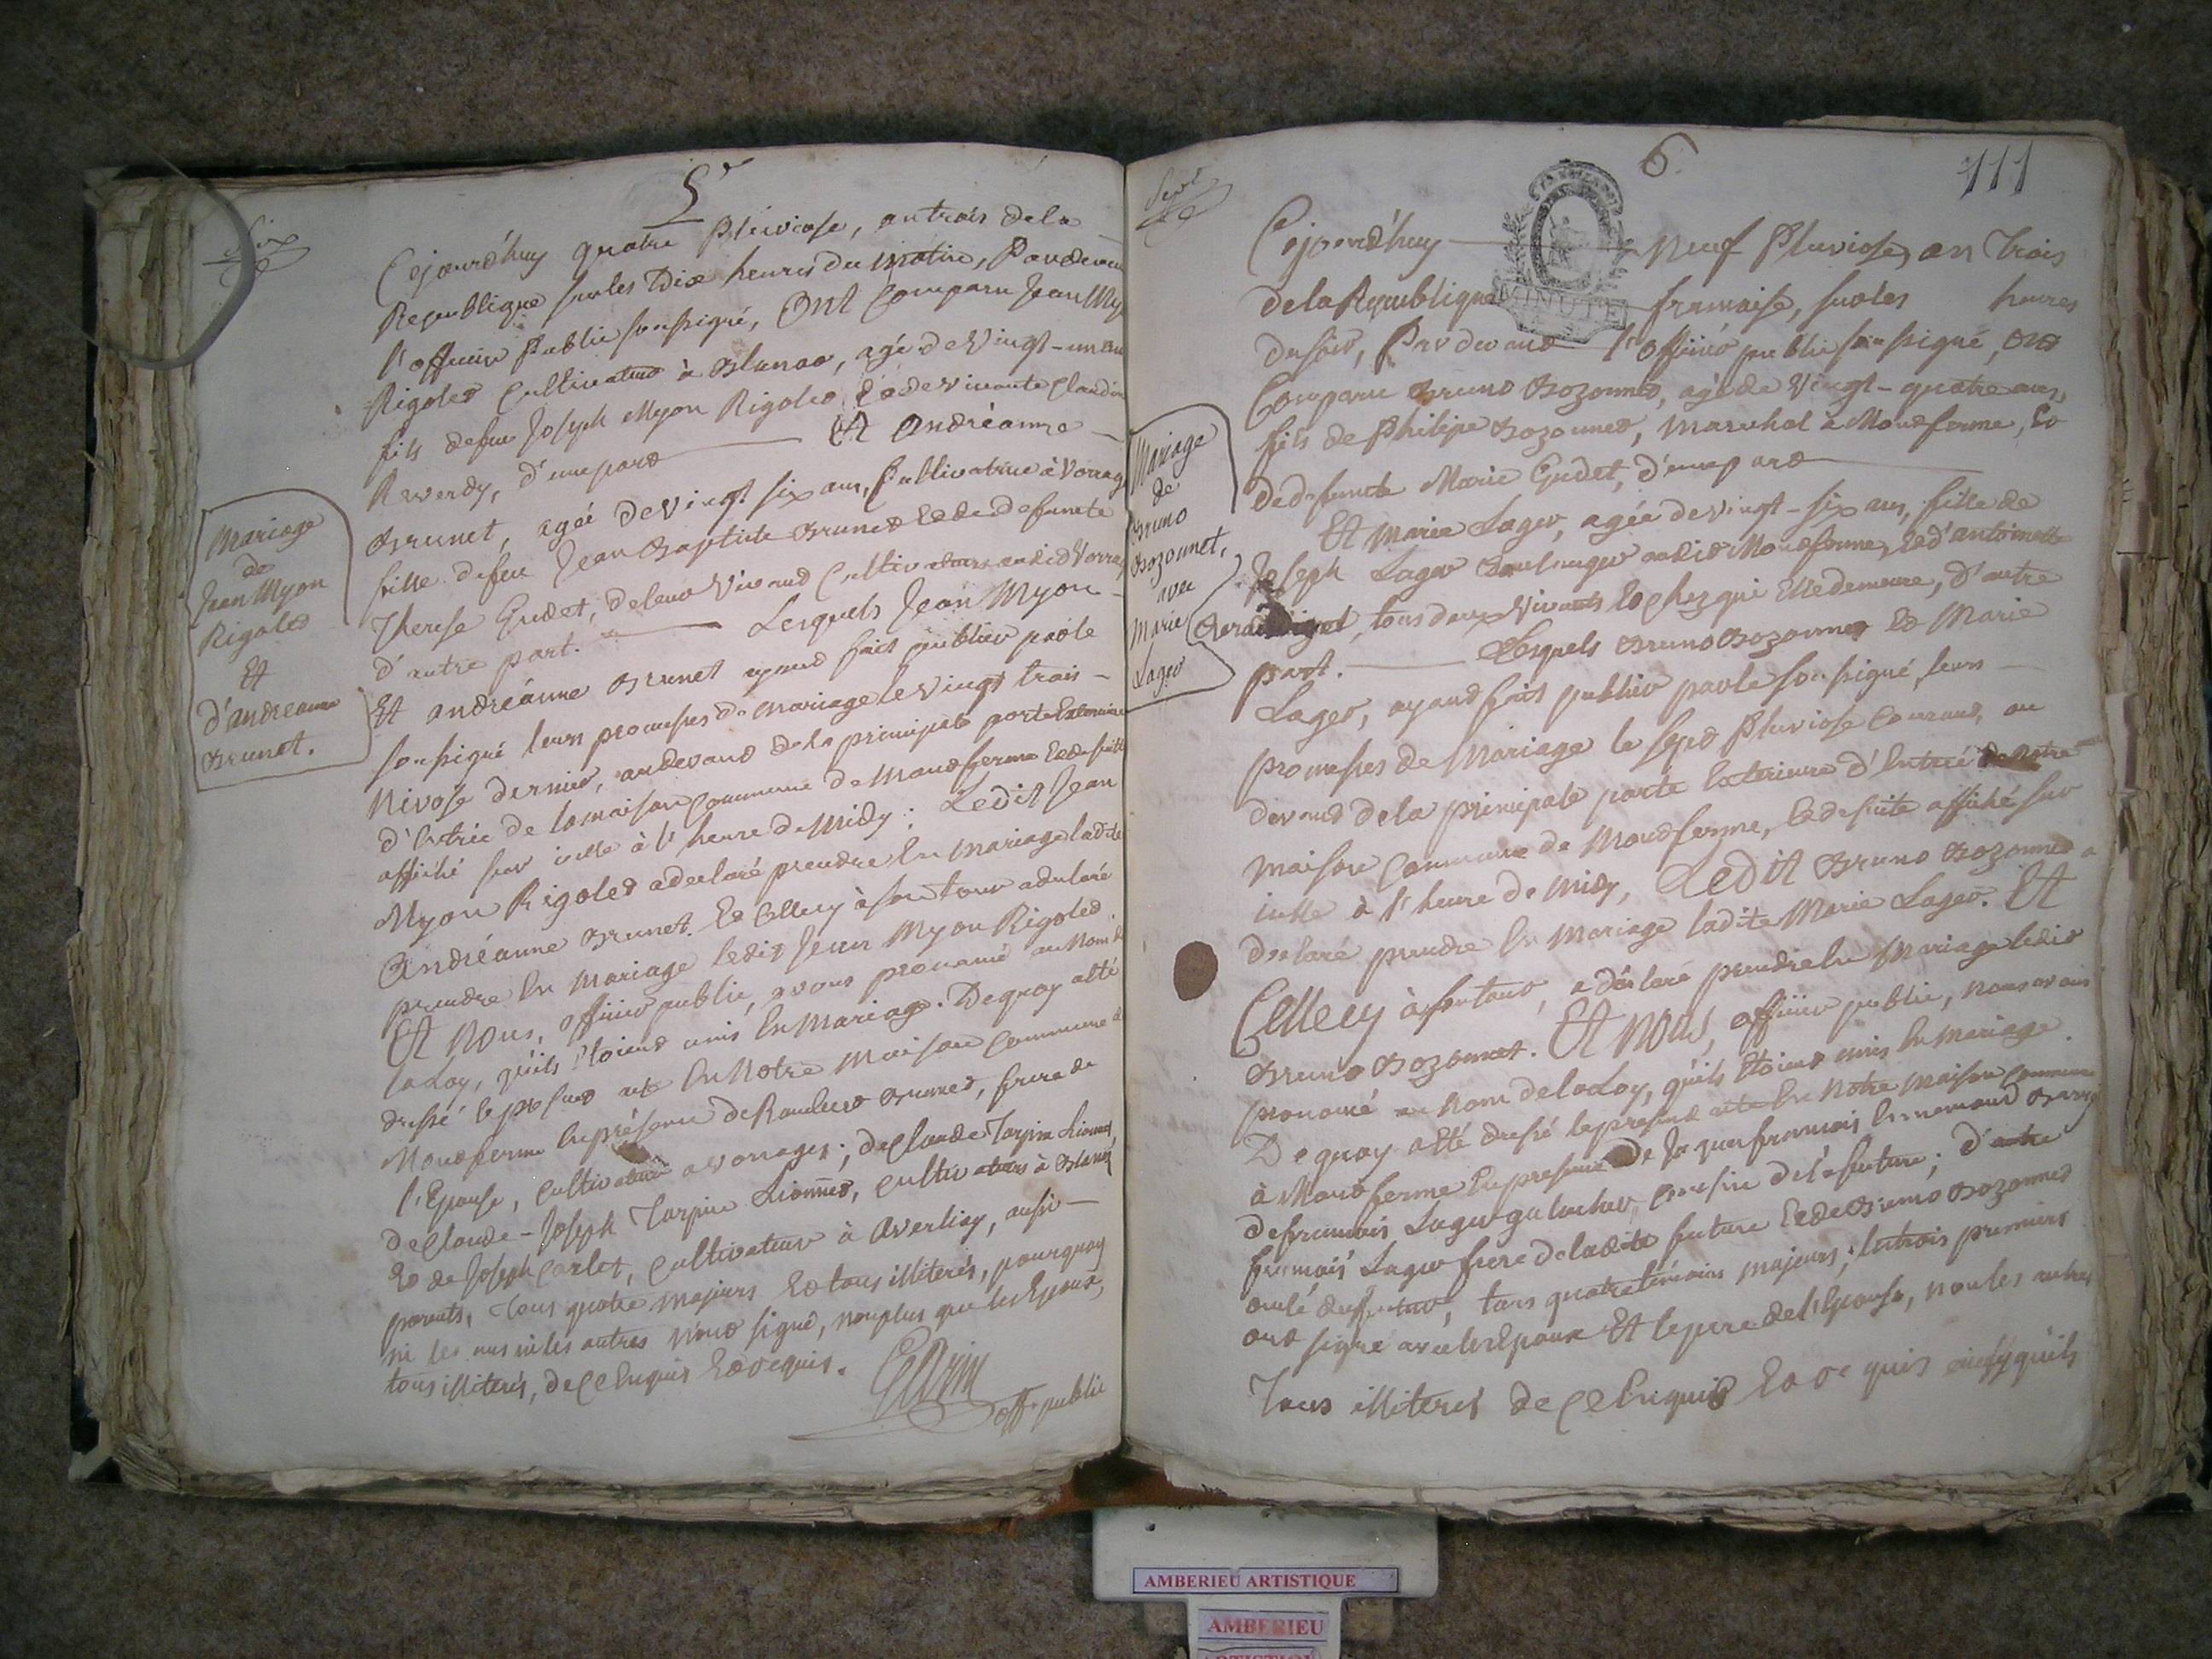 5e
Cejourd'huy quatre Pluviose, an trois de la
Republique sur les Dix heures du matin, Pardevant
l'officier Public soussigné, Ont Comparu Jean Myon
Rigoles Cultivateur à Blanas, agé de Vingt-un ans
fils de feu Joseph Myon Rigoles, Et de vivante Claudine
Reverdy, d'une part Et Andréanne
Brunet, agée de vingt six ans, Cultivatrice à Vorrages
fille de feu Jean Baptiste Brunet Et de defuncte
Therese Gudet, de leur Vivant Cultivateurs audit Vorrages
d'autre part. Lesquels Jean Myon
Et Andréanne Brunet ayant fait publier par le
soussigné leurs promesses de mariage le vingt trois
Nivose dernier, au devant de la principale porte Exterieure
d'Entrée de la maison Commune de Montferme Et de suite
affiché sur icelle à l'heure de Midy; Ledit Jean
Myon Rigoles a declaré prendre En mariage ladite
Andréanne Brunet. Et Cellecy à son tour a declaré
prendre En mariage ledit Jean Myon Rigoles.
Et Nous, officier public, avons prononcé au Nom de
la Loy, qu'ils Etoient unis En Mariage. Dequoy a Eté
dressé le present acte En Notre Maison Commune de
Montferme En présence de Brunet, frere de
l'Epouse, Cultivateur à Vorrages; de Claude Tarpin Lionnet,
de Claude-Joseph Tarpin Lionnet, Cultivateurs à Blanas
Et de Joseph Carlet, Cultivateur à Averliay, aussi
parents, Tous quatre majeurs Et tous illiterés, pourquoy
ni les uns ni les autres n'ont signé, nonplus que les Epoux,
tous illiterés, de Ce Enquis Et requis.
off. public
Mariage
de
Jean Myon
Rigoles
Et
d'Andreanne
Brunet.
6.
111
MINUTE
Cejourd'huy Neuf Pluviose, an Trois
de la Republique francaise, sur les heures
du soir, Pardevant l'officier public soussigné, Ont
Comparu Bruno Bozonnet, agé de Vingt-quatre ans,
fils de Philipe Bozonnet, Marechal à Montferme, Et
de defuncte Marie Gudet, d'une part
Et Marie Lager, agée de vingt-six ans, fille de
Joseph Lager Boulanger audit Montferme, Et d'antoinette
tous deux Vivants Et chez qui Elle demeure, d'autre
part. Lesquels Bruno Bozonnet Et Marie
Lager, ayant fait publier par le soussigné, leurs
promesses de Mariage le sept Pluviose Courant, au
devant de la principale porte Exterieure d'Entrée de notre
maison Commune de Montferme, Et de suite affiché sur
icelle à l'heure de midy, Ledit Bruno Bozonnet a
declaré prendre En Mariage ladite Marie Lager. Et
Cellecy à son tour, a déclaré prendre En Mariage ledit
Bruno Bozonnet. Et Nous, officier public, nous avons
prononcé au Nom de la Loy, qu'ils Etoient unis En mariage.
Dequoy a Eté dressé le present acte En Notre maison Commune
à Montferme En presence de Jaques francois
de francois Lager galachet, Cousin de la future; d'autre
francois Lager frere de ladite future Et de Bruno Bozonnet
du futur, tous quatre temoins majeurs; les trois premiers
ont signé avec les Epoux Et le pere de l'Epouse, non les autres
Tous illiterés de Ce Enquis Et requis ainsy qu'ils
Mariage
de
Bruno
Bozonnet,
avec
Marie
Lager
AMBERIEU ARTISTIQUE
AMBERIEU
ARTISTIQUE